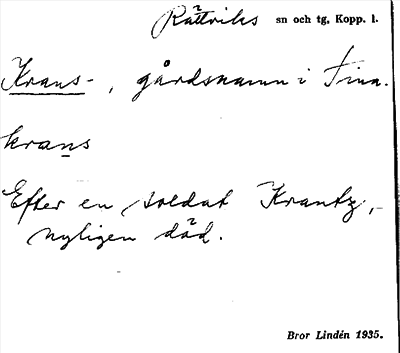 Rättviks sn och tg, Kopp. l.
Krans-, gårdsnamn i Fina.
krans
Efter en soldat Krantz,
nyligen död.
Bror Lindén 1935.